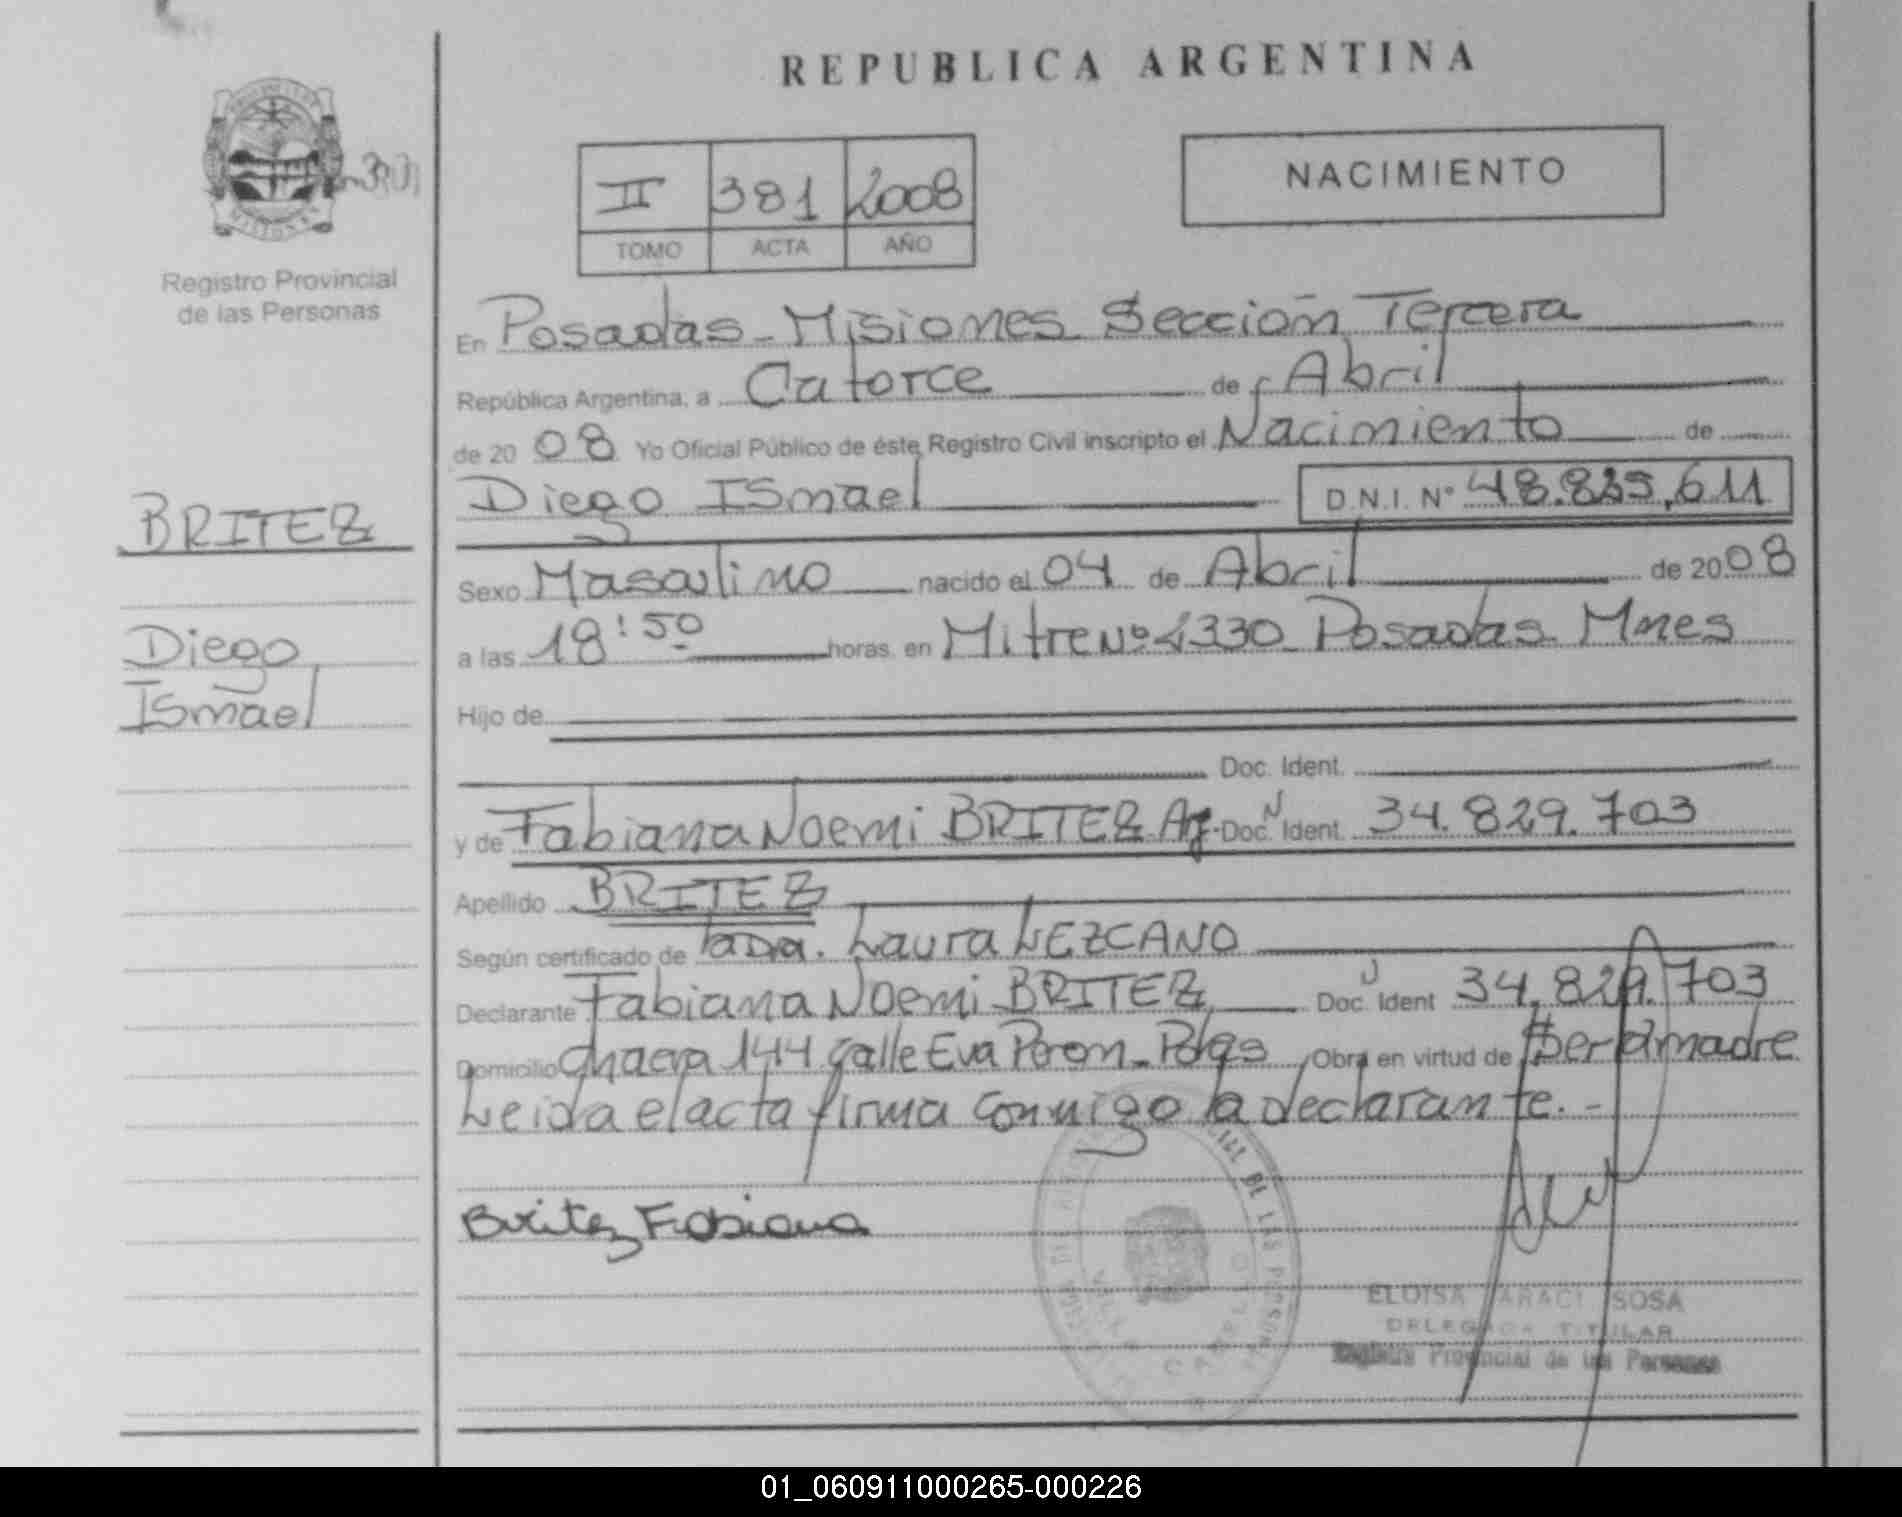 REPUBLICA ARGENTINA
II 381 2008
TOMO ACTA AÑO
NACIMIENTO
Registro Provincial
de las Personas
BRITEZ
Diego
Ismael
En Posadas - Misiones Sección Tercera
República Argentina, a Catorce de Abril
de 2008 Yo Oficial Público de éste Registro Civil inscripto el Nacimiento de
Diego Ismael D.N.I. Nº 48.825.611
Sexo Masculino nacido el 04 de Abril de 2008
a las 18:50 horas en Mitre Nº 2330 Posadas Mnes
Hijo de
Doc. Ident.
y de Fabiana Noemi BRITEZ Arg. Doc. N Ident. 34.829.703
Apellido BRITEZ
Según certificado de la Dra. Laura LEZCANO
Declarante Fabiana Noemi BRITEZ Doc. Ident 34.829.703
Domicilio Chacra 144 Calle Eva Peron - Pdas Obra en virtud de ser la madre
Leida el acta firma conmigo la declarante. -
Britez Fabiana
ELOISA ARACI SOSA
DELEGADA TITULAR
Registro Provincial de las Personas
01_060911000265-000226